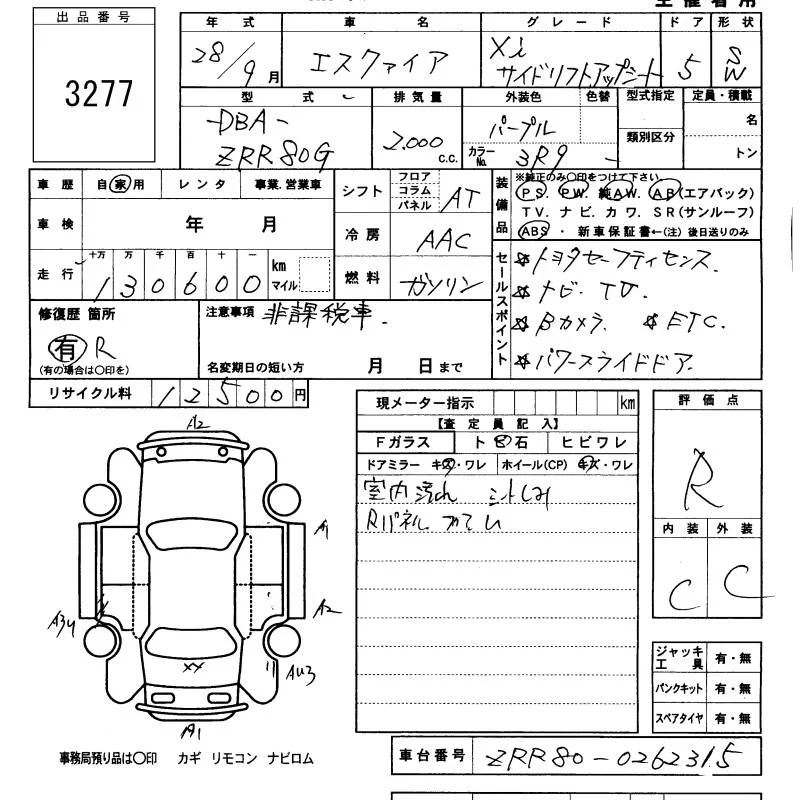 出品番号
3277
年式
28/9月
車名
エスクァイア
グレード
Xi
サイドリフトアップシート
ドア
5
形状
SW
型式
-DBA-
ZRR80G
排気量
2.000
c.c.
外装色
パープル
色替
カラーNo.
3R9 -
型式指定
類別区分
定員・積載
名
トン
車歴
自家用
レンタ
事業.営業車
車検
年 月
走行
十万 万 千 百 十 一
130600
km
マイル
シフト
フロア
コラム
パネル
AT
冷房
AAC
燃料
ガソリン
装備品
※純正のみ〇印をつけて下さい。
PS. PW. 純AW. AB(エアバック)
TV. ナビ. カワ. SR(サンルーフ)
ABS ・ 新車保証書←(注) 後日送りのみ
セールスポイント
☆トヨタセーフティセンス.
☆ナビ. TV.
☆Bカメラ. ☆ETC.
☆パワースライドドア.
修復歴 箇所
有 R
(有の場合は〇印を)
注意事項
非課税車.
名変期日の短い方
月 日まで
リサイクル料
12500円
現メーター指示
km
【査定員記入】
Fガラス
ト 石
ヒビワレ
ドアミラー キズ・ワレ
ホイール(CP) キズ・ワレ
室内 汚れ シートしみ
Rパネル
評価点
R
内装
外装
C
C
A2
A1
A2
A3U
AU3
XX
A1
ジャッキ
工具
有・無
パンクキット
有・無
スペアタイヤ
有・無
事務局預り品は〇印 カギ リモコン ナビロム
車台番号
ZRR80-0262315